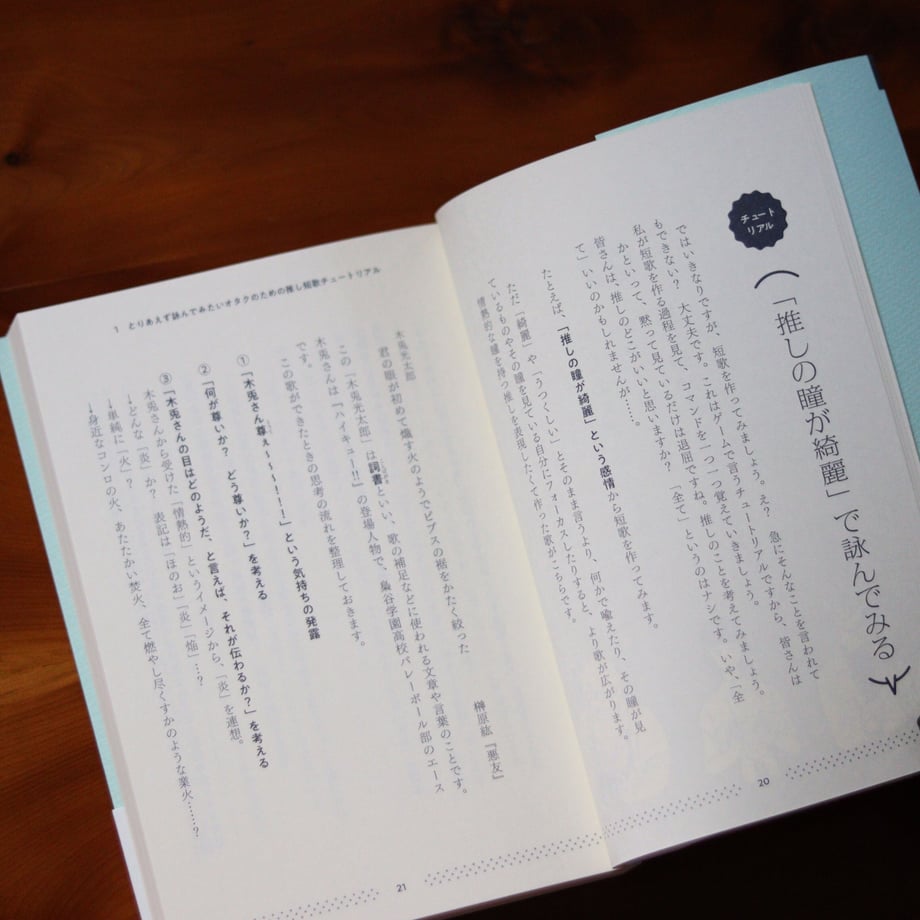 チュート
リアル
「推しの瞳が綺麗」で詠んでみる
ではいきなりですが、短歌を作ってみましょう。え？　急にそんなことを言われて
もできない？　大丈夫です。これはゲームで言うチュートリアルですから、皆さんは
私が短歌を作る過程を見て、コマンドを一つ一つ覚えていきましょう。
かといって、黙って見ているだけは退屈ですね。推しのことを考えてみましょう。
皆さんは、推しのどこがいいと思いますか？　「全て」というのはナシです。いや、「全
て」いいのかもしれませんが……。
たとえば、「推しの瞳が綺麗」という感情から短歌を作ってみます。
ただ「綺麗」や「うつくしい」とそのまま言うより、何かで喩えたり、その瞳が見
ているものやその瞳を見ている自分にフォーカスしたりすると、より歌が広がります。
情熱的な瞳を持つ推しを表現したくて作った歌がこちらです。
20
1　とりあえず詠んでみたいオタクのための推し短歌チュートリアル
木兎光太郎
君の眼が初めて熾す火のようでビブスの裾をかたく絞った
榊原紘『悪友』
この「木兎光太郎」は詞書といい、歌の補足などに使われる文章や言葉のことです。
木兎さんは『ハイキュー!!』の登場人物で、梟谷学園高校バレーボール部のエース
です。
この歌ができたときの思考の流れを整理しておきます。
①「木兎さん尊ぇ〜〜〜!!!」という気持ちの発露
②「何が尊いか？　どう尊いか？」を考える
③「木兎さんの目はどのようだ、と言えば、それが伝わるか？」を考える
木兎さんから受けた「情熱的」というイメージから、「炎」を連想。
→どんな「炎」か？　表記は「ほのお」「炎」「焔」…？
→単純に「火」？
→身近なコンロの火、あたたかい焚火、全て燃やし尽くすかのような業火……？
21